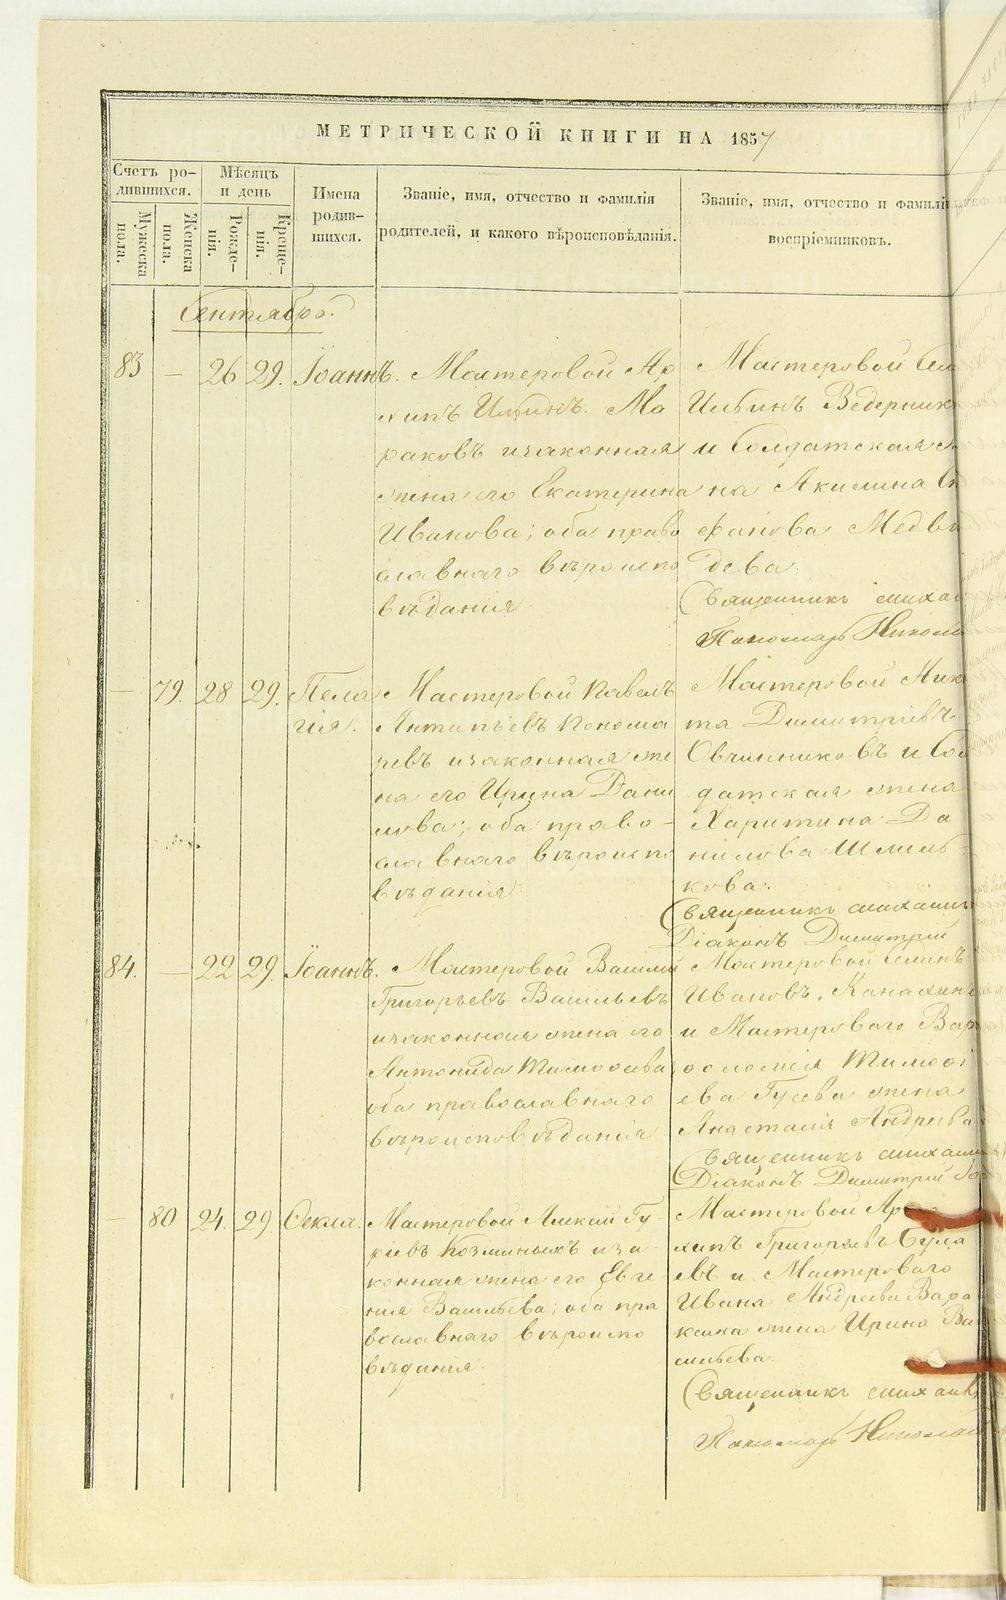 МЕТРИЧЕСКОЙ КНИГИ НА 1857
Счетъ ро-
дившихся.
Мужеска
пола.
Женска
пола.
Мѣсяцъ
и день
Рожде-
нія.
Креще-
нія.
Имена
родив-
шихся.
Званіе, имя, отчество и фамилія
родителей, и какого вѣроисповѣданія.
Званіе, имя, отчество и фамилі
воспріемниковъ.
Сентябрь.
83 — 26 29. Іоаннъ.
Мастеровой Ар
хипъ Ильинъ. Ма
раковъ и законная
жена его Екатерина
Иванова; оба право
славнаго вѣроиспо
вѣданія
Мастеровой
Ильинъ Ведерник
и Солдатская ж
на Акилина Сте
фанова Медвѣ
дева.
Священникъ Михаи
Пономарь Никола
— 79. 28 29. Пела
гія.
Мастеровой Павелъ
Антипьевъ Понома
ревъ и законная же
на его Ирина Дани
лова; оба право-
славнаго вѣроиспо
вѣданія
Мастеровой Ники
та Димитріевъ
Овчинниковъ и Сол
датская жена
Харитина Да
нилова Шмель-
кова.
Священникъ Михаилъ
Діаконъ Димитрій
84. — 22 29. Іоаннъ.
Мастеровой Василій
Григорьевъ Васильевъ
и законная жена его
Антонида Тимоѳеева
оба православнаго
вѣроисповѣданія
Мастеровой
Ивановъ. Канахин
и Мастероваго Вар
ѳоломея Тимоѳѣ
ева Гусева жена
Анастасія Андреева
Священникъ Михаи
Діаконъ Димитрій
— 80 24. 29. Ѳекла.
Мастеровой Алексій Гу-
ріевъ Козминыхъ и за
конная жена его Евге
нія Васильева; оба пра
вославнаго вѣроиспо
вѣданія.
Мастеровой Ар
хипъ Григорьевъ Була
евъ и Мастероваго
Ивана Андреева Вара
ксина жена Ирина Ва
сильева
Священникъ Михаи
Пономарь Николай